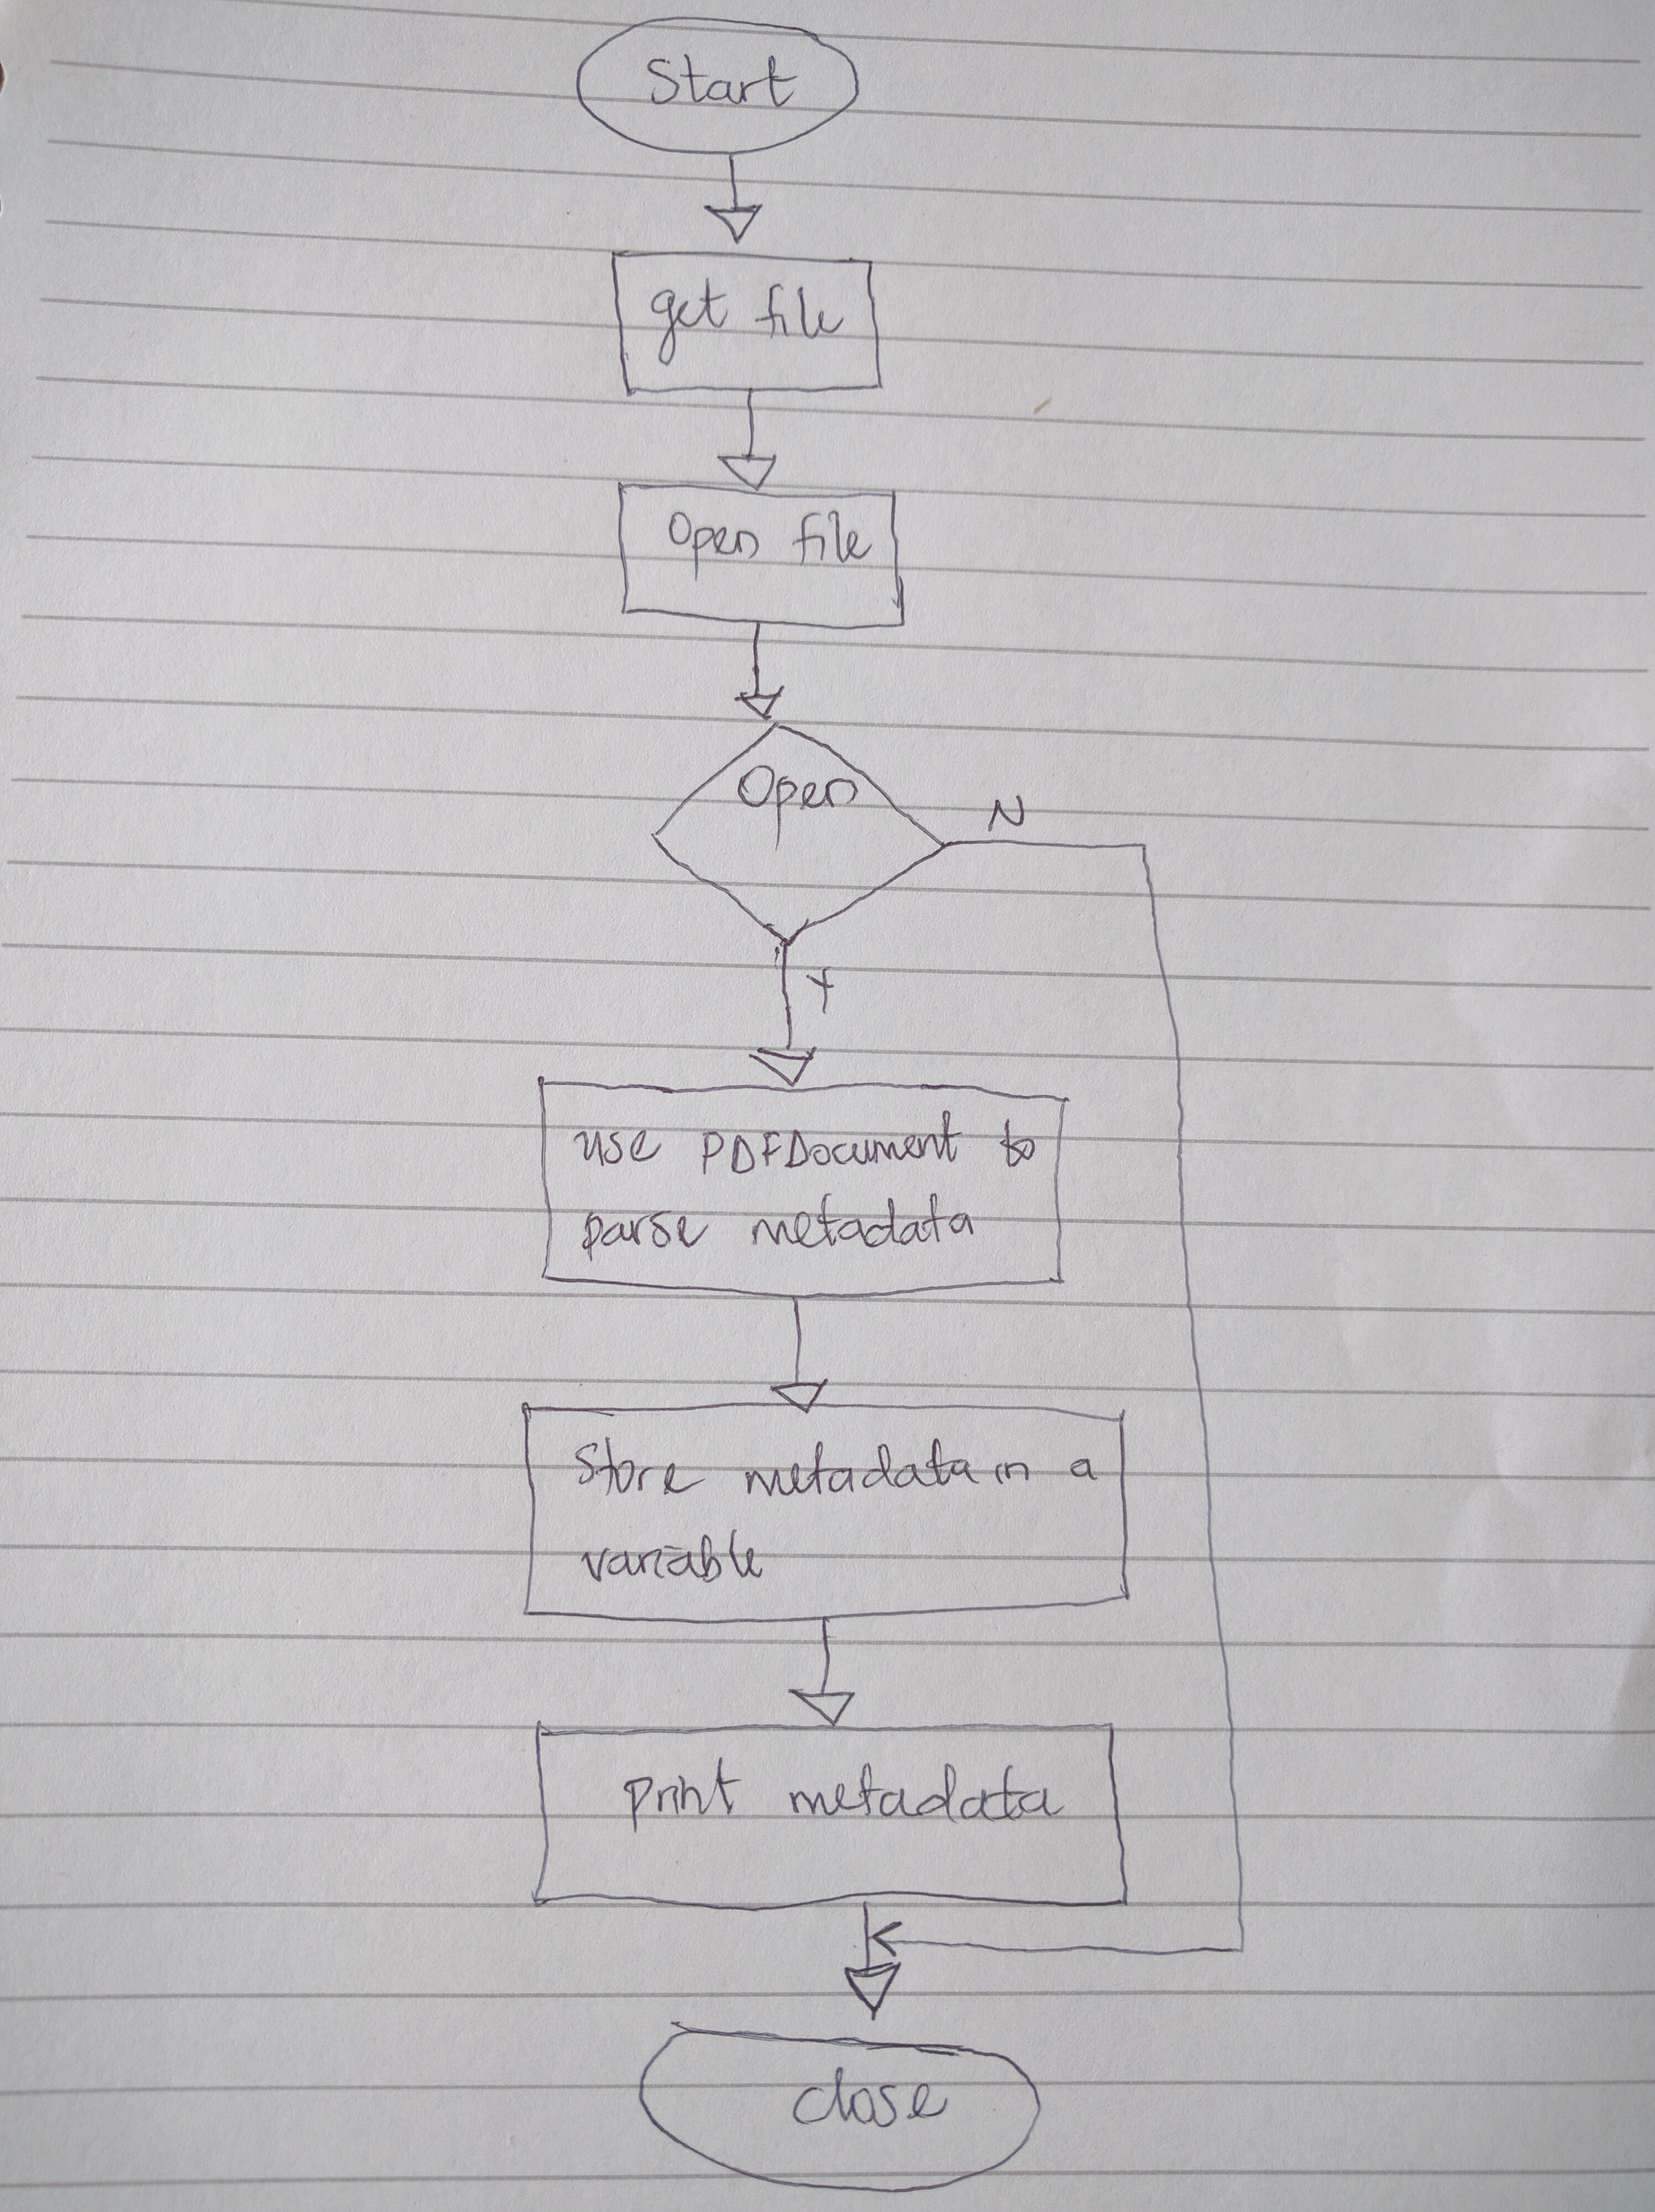 Start
get file
Open file
Open
N
Y
use PDFDocument to
parse metadata
Store metadata in a
variable
print metadata
close